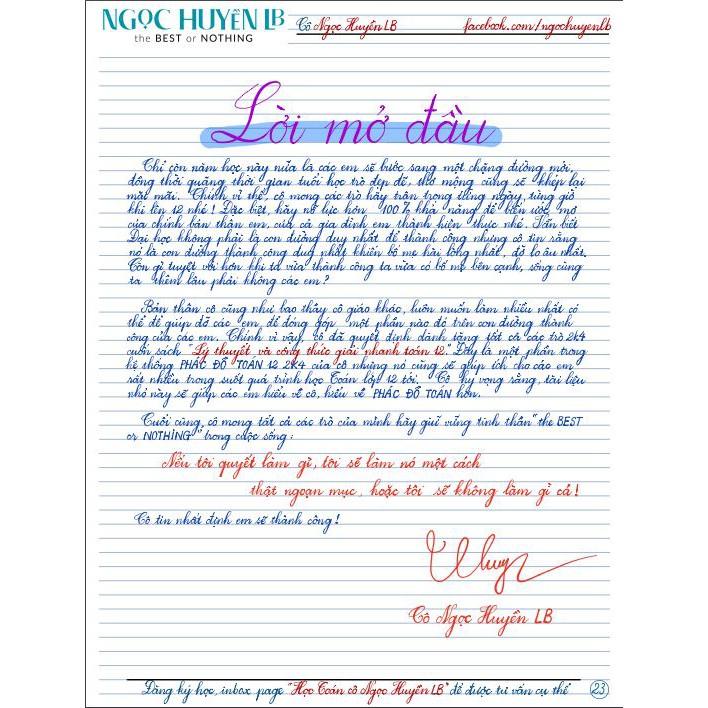 NGỌC HUYỀN LB
the BEST or NOTHING
Cô Ngọc Huyền LB
facebook.com/ngochuyenlb
Lời mở đầu
Chỉ còn năm học này nữa là các em sẽ bước sang một chặng đường mới,
đồng thời quãng thời gian tuổi học trò đẹp đẽ, thơ mộng cũng sẽ khép lại
mãi mãi. Chính vì thế, cô mong các trò hãy trân trọng từng ngày, từng giờ
khi lên 12 nhé! Đặc biệt, hãy nỗ lực hơn 100% khả năng để biến ước mơ
của chính bản thân em, của cả gia đình em thành hiện thực nhé. Vẫn biết
Đại học không phải là con đường duy nhất để thành công nhưng cô tin rằng
nó là con đường thành công duy nhất khiến bố mẹ hài lòng nhất, đỡ lo âu nhất.
Còn gì tuyệt vời hơn khi ta vừa thành công ta vừa có bố mẹ bên cạnh, sống cùng
ta thêm lâu phải không các em?
Bản thân cô cũng như bao thầy cô giáo khác, luôn muốn làm nhiều nhất có
thể để giúp đỡ các em, để đóng góp một phần nào đó trên con đường thành
công của các em. Chính vì vậy, cô đã quyết định dành tặng tất cả các trò 2k4
cuốn sách "Lý thuyết và công thức giải nhanh toán 12". Đây là một phần trong
hệ thống PHÁC ĐỒ TOÁN 12 2K4 của cô nhưng nó cũng sẽ giúp ích cho các em
rất nhiều trong suốt quá trình học Toán lớp 12 tới. Cô hy vọng rằng, tài liệu
nhỏ này sẽ giúp các em hiểu về cô, hiểu về PHÁC ĐỒ TOÁN hơn.
Cuối cùng, cô mong tất cả các trò của mình hãy giữ vững tinh thần "the BEST
or NOTHING" trong cuộc sống:
Nếu tôi quyết làm gì, tôi sẽ làm nó một cách
thật ngoạn mục, hoặc tôi sẽ không làm gì cả!
Cô tin nhất định em sẽ thành công!
Huyền
Cô Ngọc Huyền LB
Đăng ký học, inbox page "Học Toán cô Ngọc Huyền LB" để được tư vấn cụ thể
23